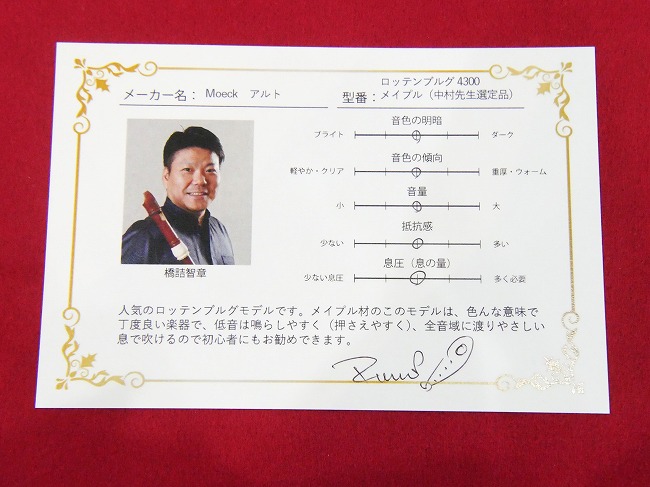 メーカー名： Moeck　アルト
ロッテンブルグ 4300
型番：メイプル（中村先生選定品）
音色の明暗
ブライト　ダーク
音色の傾向
軽やか・クリア　重厚・ウォーム
音量
小　大
抵抗感
少ない　多い
息圧（息の量）
少ない息圧　多く必要
橋詰智章
人気のロッテンブルグモデルです。メイプル材のこのモデルは、色んな意味で
丁度良い楽器で、低音は鳴らしやすく（押さえやすく）、全音域に渡りやさしい
息で吹けるので初心者にもお勧めできます。